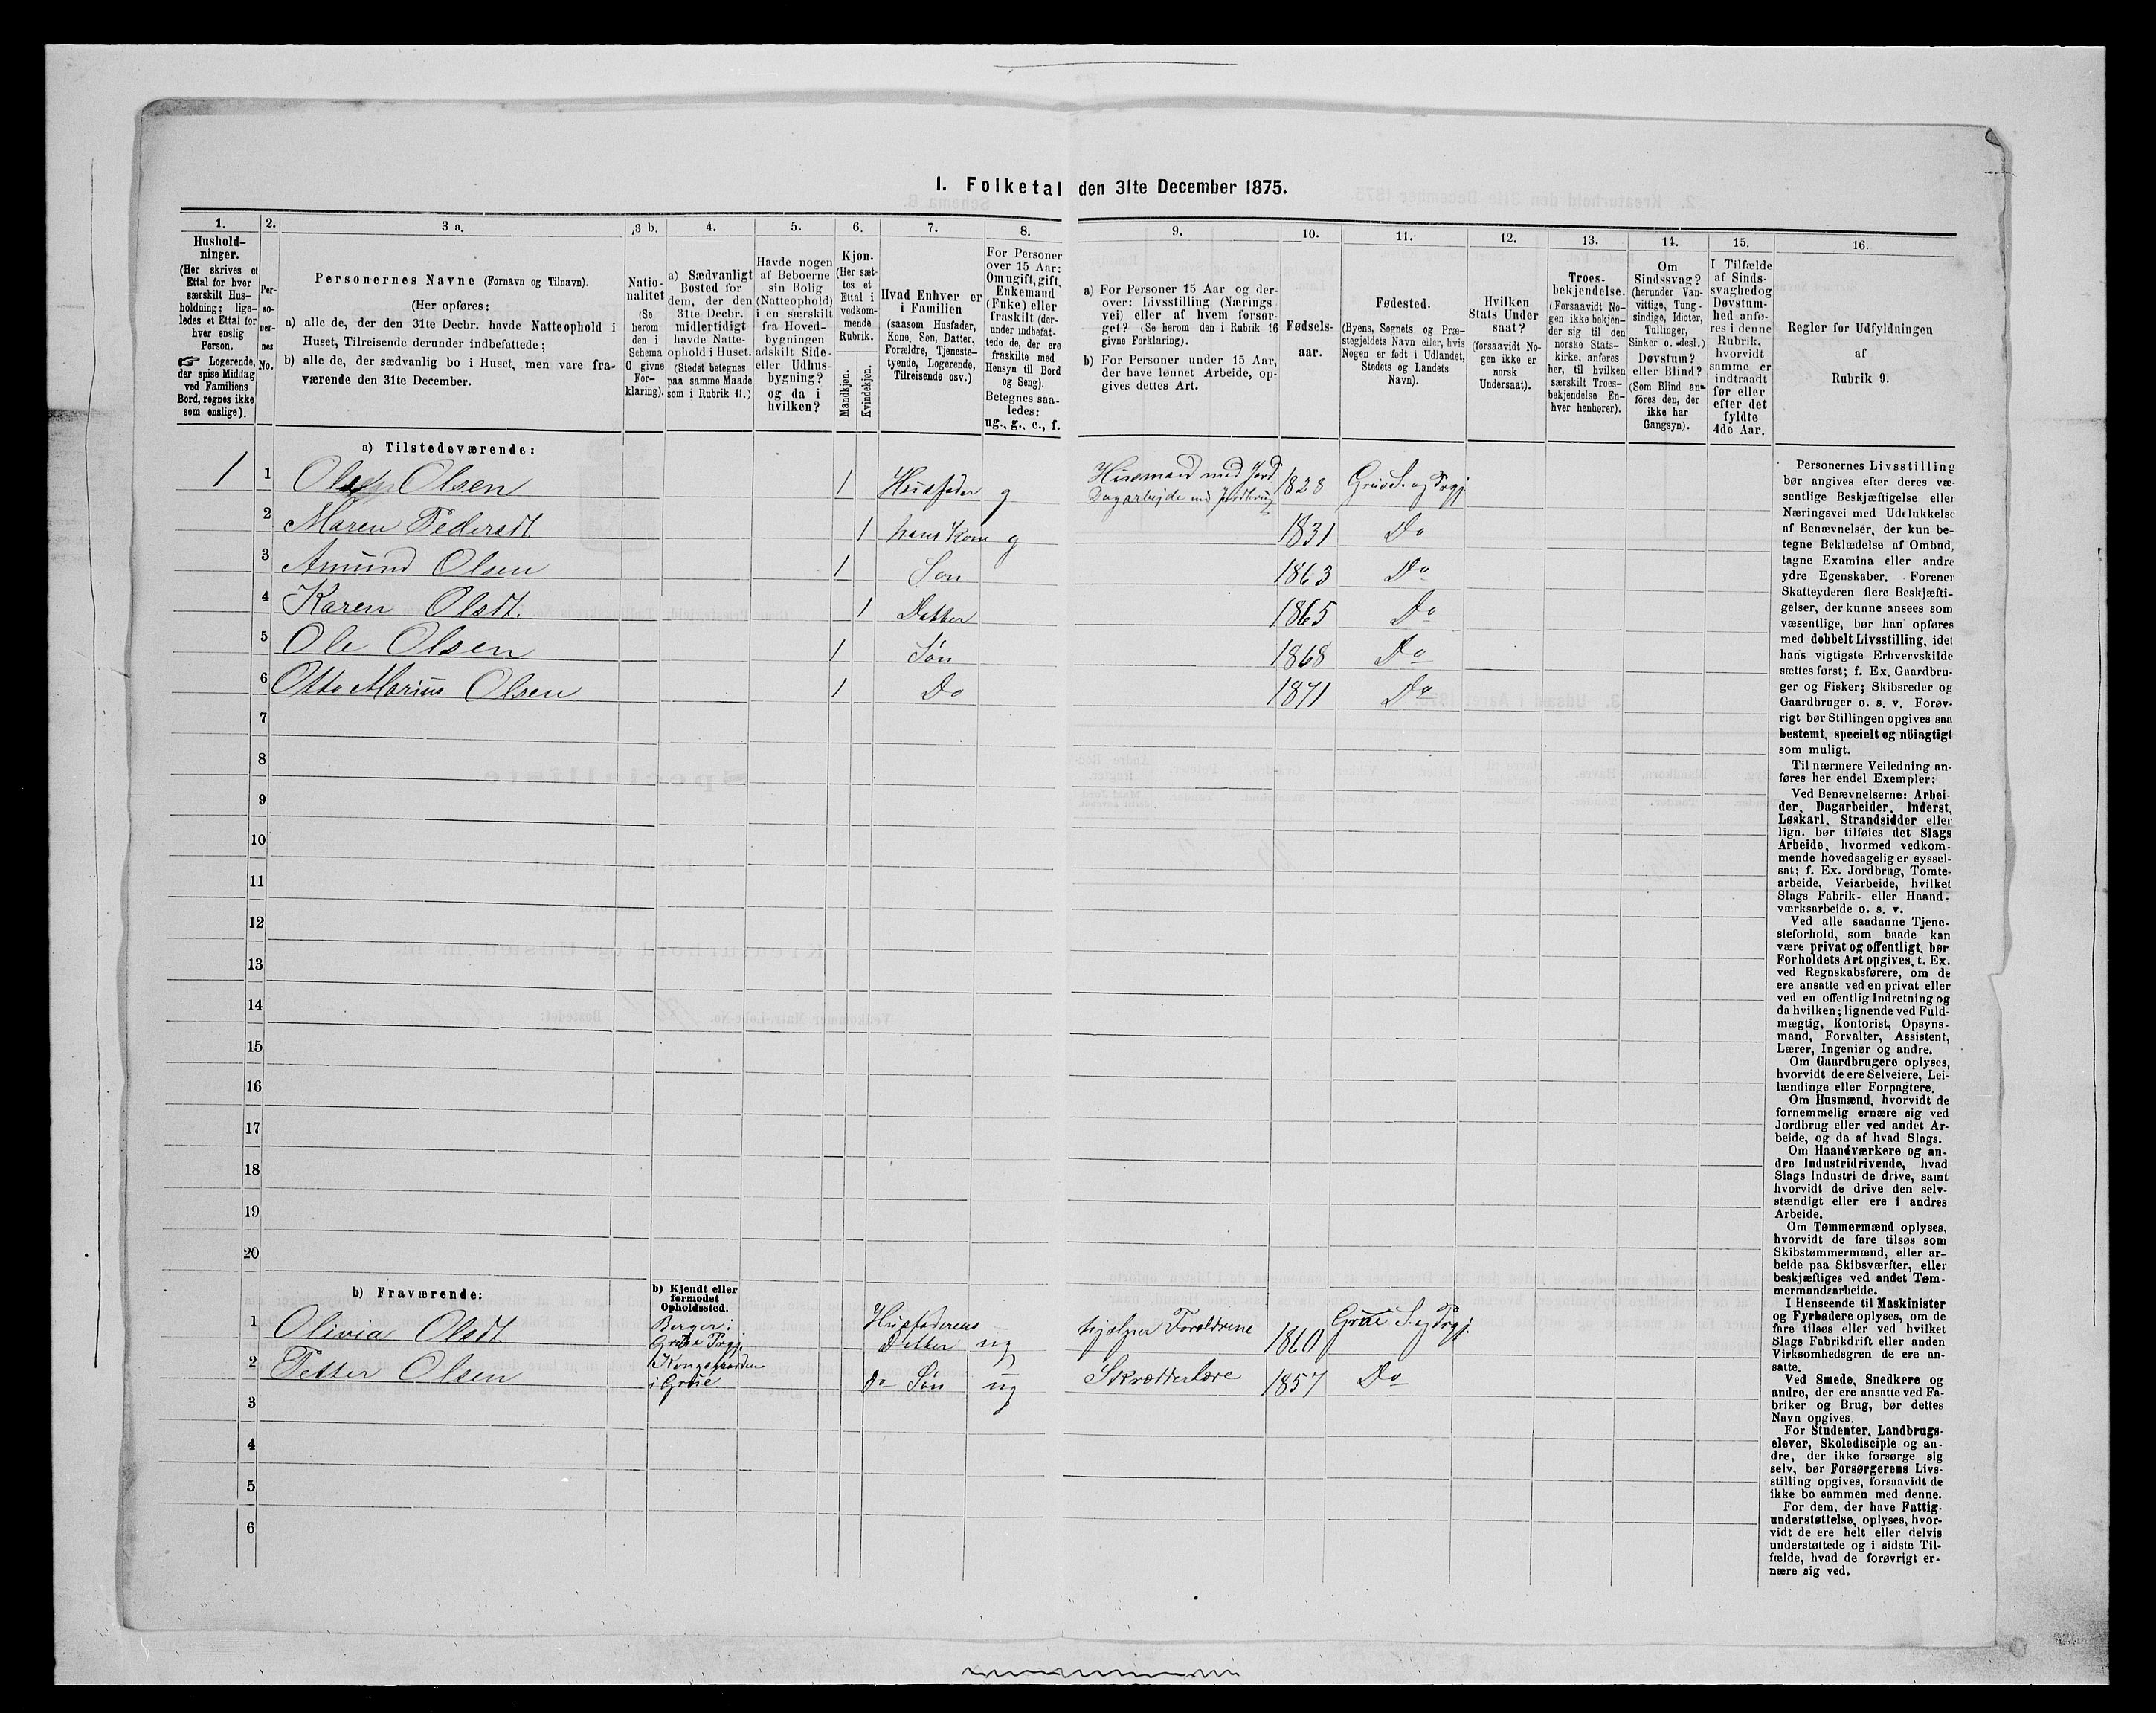 I. Folketal den 31te December 1875.
1.
Hushold-
ninger.
(Her skrives et
Ettal for hver
særskilt Hus-
holdning; lige-
ledes et Ettal for
hver enslig
Person.
☞ Logerende,
der spise Middag
ved Familiens
Bord, regnes ikke
som enslige).
2.
Per-
so-
ner-
nes
No.
3 a.
Personernes Navne (Fornavn og Tilnavn).
(Her opføres:
a) alle de, der den 31te Decbr. havde Natteophold i
Huset, Tilreisende derunder indbefattede;
b) alle de, der sædvanlig bo i Huset, men vare fra-
værende den 31te December.
3 b.
Natio-
nalitet
(Se
herom
den i
Schema
C givne
For-
klaring).
4.
a) Sædvanligt
Bosted for
dem, der den
31te Decbr.
midlertidigt
havde Natte-
ophold i Huset.
(Stedet betegnes
paa samme Maade
som i Rubrik 11.)
5.
Havde nogen
af Beboerne
sin Bolig
(Natteophold)
i en særskilt
fra Hoved-
bygningen
adskilt Side-
eller Udhus-
bygning?
og da i
hvilken?
6.
Kjøn.
(Her sæt-
tes et
Ettal i
vedkom-
mende
Rubrik.
Mandkjøn.
Kvindekjøn.
7.
Hvad Enhver er
i Familien
(saasom Husfader,
Kone, Søn, Datter,
Forældre, Tjeneste-
tyende, Logerende,
Tilreisende osv.)
8.
For Personer
over 15 Aar:
Om ugift, gift,
Enkemand
(Enke) eller
fraskilt (der-
under indbefat-
tede de, der ere
fraskilte med
Hensyn til Bord
og Seng).
Betegnes saa-
ledes:
ug., g., e., f.
9.
a) For Personer 15 Aar og der-
over: Livsstilling (Nærings
vei) eller af hvem forsør-
get? (Se herom den i Rubrik 16
givne Forklaring).
b) For Personer under 15 Aar,
der have lønnet Arbeide, op-
gives dettes Art.
10.
Fødsels-
aar.
11.
Fødested.
(Byens, Sognets og Præ-
stegjeldets Navn eller, hvis
Nogen er født i Udlandet,
Stedets og Landets
Navn).
12.
Hvilken
Stats Under
saat?
(forsaavidt No-
gen ikke er
norsk
Undersaat).
13.
Troes-
bekjendelse.
(Forsaavidt No-
gen ikke bekjen-
der sig til den
norske Stats-
kirke, anføres
her, til hvilken
særskilt Troes-
bekjendelse En-
hver henhører).
14.
Om
Sindssvag?
(herunder Van-
vittige, Tung-
sindige, Idioter,
Tullinger,
Sinker o. desl.)
Døvstum?
eller Blind?
(Som Blind an-
føres den, der
ikke har
Gangsyn).
15.
I Tilfælde
af Sinds-
svaghed og
Døvstum-
hed anfø-
res i denne
Rubrik,
hvorvidt
samme er
indtraadt
før eller
efter det
fyldte
4de Aar.
16.
Regler for Udfyldningen
af
Rubrik 9.
a) Tilstedeværende:
1 1 Olsen 1 Husfader g Husmand med Jord 1828 Grue S. og Prgj.
Dagarbejde ved Jordbrug
2 Maren Pedersdt. 1 hans Kone g 1831 Do
3 Amund Olsen 1 Søn 1863 Do
4 Karen Olsdt. 1 Datter 1865 Do
5 Ole Olsen 1 Søn 1868 Do
6 Otto Marius Olsen 1 Do 1871 Do
7
8
9
10
11
12
13
14
15
16
17
18
19
20
b) Fraværende:
b) Kjendt eller
formodet
Opholdssted.
1 Olivia Olsdt. Berger i Grue Prgj. Husfaderens Datter ug hjælper Forældrene 1860 Grue S. og Prgj.
2 Petter Olsen Kongsgaarden i Grue. do Søn ug Skrædderlære 1857 Do
3
4
5
6
Personernes Livsstilling
bør angives efter deres væ-
sentlige Beskjæftigelse eller
Næringsvei med Udelukkelse
af Benævnelser, der kun be-
tegne Beklædelse af Ombud,
tagne Examina eller andre
ydre Egenskaber. Forener
Skatteyderen flere Beskjæfti-
gelser, der kunne ansees som
væsentlige, bør han opføres
med dobbelt Livsstilling, idet
hans vigtigste Erhvervskilde
sættes først; f. Ex. Gaardbru-
ger og Fisker; Skibsreder og
Gaardbruger o. s. v. Forøv-
rigt bør Stillingen opgives saa
bestemt, specielt og nöiagtigt
som muligt.
Til nærmere Veiledning an-
føres her endel Exempler:
Ved Benævnelserne: Arbei-
der, Dagarbeider, Inderst,
Løskarl, Strandsidder eller
lign. bør tilføies det Slags
Arbeide, hvormed vedkom-
mende hovedsagelig er syssel-
sat; f. Ex. Jordbrug, Tomte-
arbeide, Veiarbeide, hvilket
Slags Fabrik- eller Haand-
værksarbeide o. s. v.
Ved alle saadanne Tjene-
steforhold, som baade kan
være privat og offentligt, bør
Forholdets Art opgives, t. Ex.
ved Regnskabsførere, om de
ere ansatte ved en privat eller
ved en offentlig Indretning og
da hvilken; lignende ved Fuld-
mægtig, Kontorist, Opsyns-
mand, Forvalter, Assistent,
Lærer, Ingeniør og andre.
Om Gaardbrugere oplyses,
hvorvidt de ere Selveiere, Lei-
lændinge eller Forpagtere.
Om Husmænd, hvorvidt de
fornemmelig ernære sig ved
Jordbrug eller ved andet Ar-
beide, og da af hvad Slags.
Om Haandværkere og an-
dre Industridrivende, hvad
Slags Industri de drive, samt
hvorvidt de drive den selv-
stændigt eller ere i andres
Arbeide.
Om Tømmermænd oplyses,
hvorvidt de fare tilsøs som
Skibstømmermænd, eller ar-
beide paa Skibsværfter, eller
beskjæftiges ved andet Tøm-
mermandsarbeide.
I Henseende til Maskinister
og Fyrbødere oplyses, om de
fare tilsøs eller ved hvilket
Slags Fabrikdrift eller anden
Virksomhedsgren de ere an-
satte.
Ved Smede, Snedkere og
andre, der ere ansatte ved Fa-
briker og Brug, bør dettes
Navn opgives.
For Studenter, Landbrugs-
elever, Skoledisciple og an-
dre, der ikke forsørge sig
selv, bør Forsørgerens Livs-
stilling opgives, forsaavidt de
ikke bo sammen med denne.
For dem, der have Fattig-
understøttelse, oplyses, hvor-
vidt de ere helt eller delvis
understøttede og i sidste Til-
fælde, hvad de forøvrigt er-
nære sig ved.